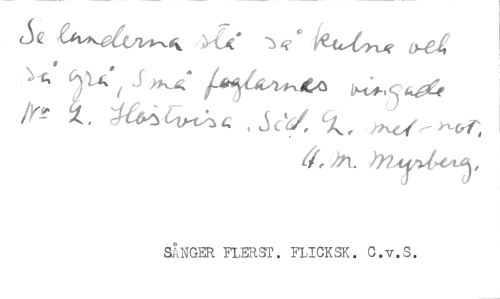 Se lunderna stå så kulna och
så grå, Små foglarnas vingade
No 2. Höstvisa. Sid. 2. mel-not.
A. M. Myrberg.
SÅNGER FLERST. FLICKSK. C.v.S.